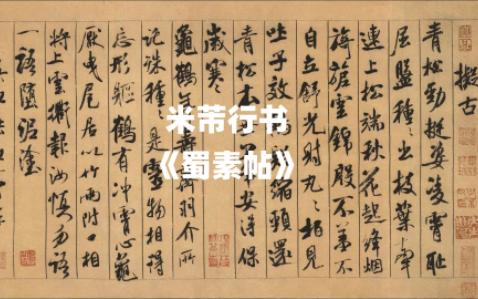 擬古
青松勁挺姿凌霄恥
屈盤種種出枝葉牽
連上松端秋花起絳烟
旖旎雲錦殷不羞不
自立舒光射丸丸柏見
吐子效縮頸還
青松本安得保
歲寒
龜鶴年壽羽介所
託殊種是靈物相得
忘形軀鶴有沖霄心龜
厭曳尾居以竹兩附口相
將上雲衢報汝慎勿語
一語墮泥塗
米芾行书
《蜀素帖》